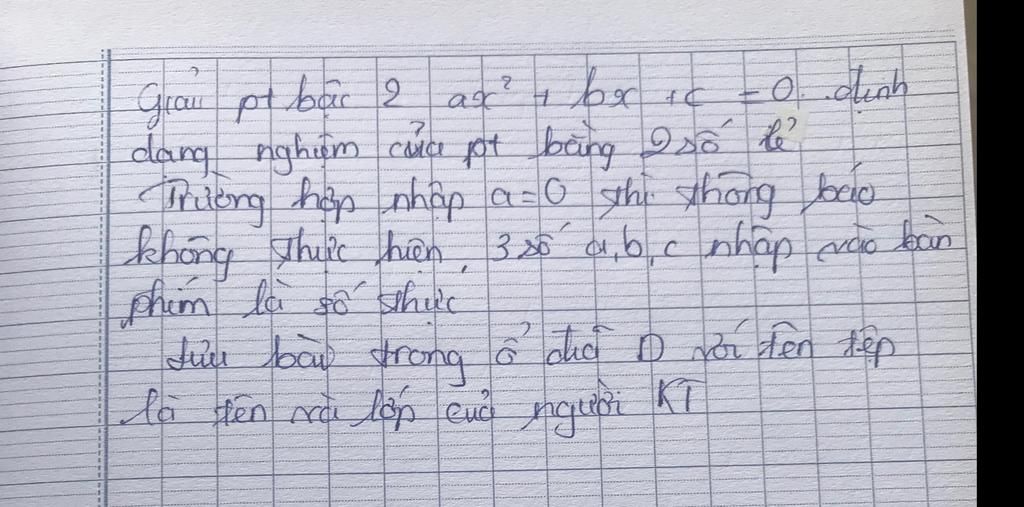 Giải pt bậc 2 ax² + bx + c = 0. định
dạng nghiệm của pt bằng 2 số lẻ
Trường hợp nhập a=0 thì thông báo
không thực hiện, 3 số a, b, c nhập vào bàn
phím là số thực
Lưu bài trong ổ đĩa D với tên tệp
là tên và lớp của người KT